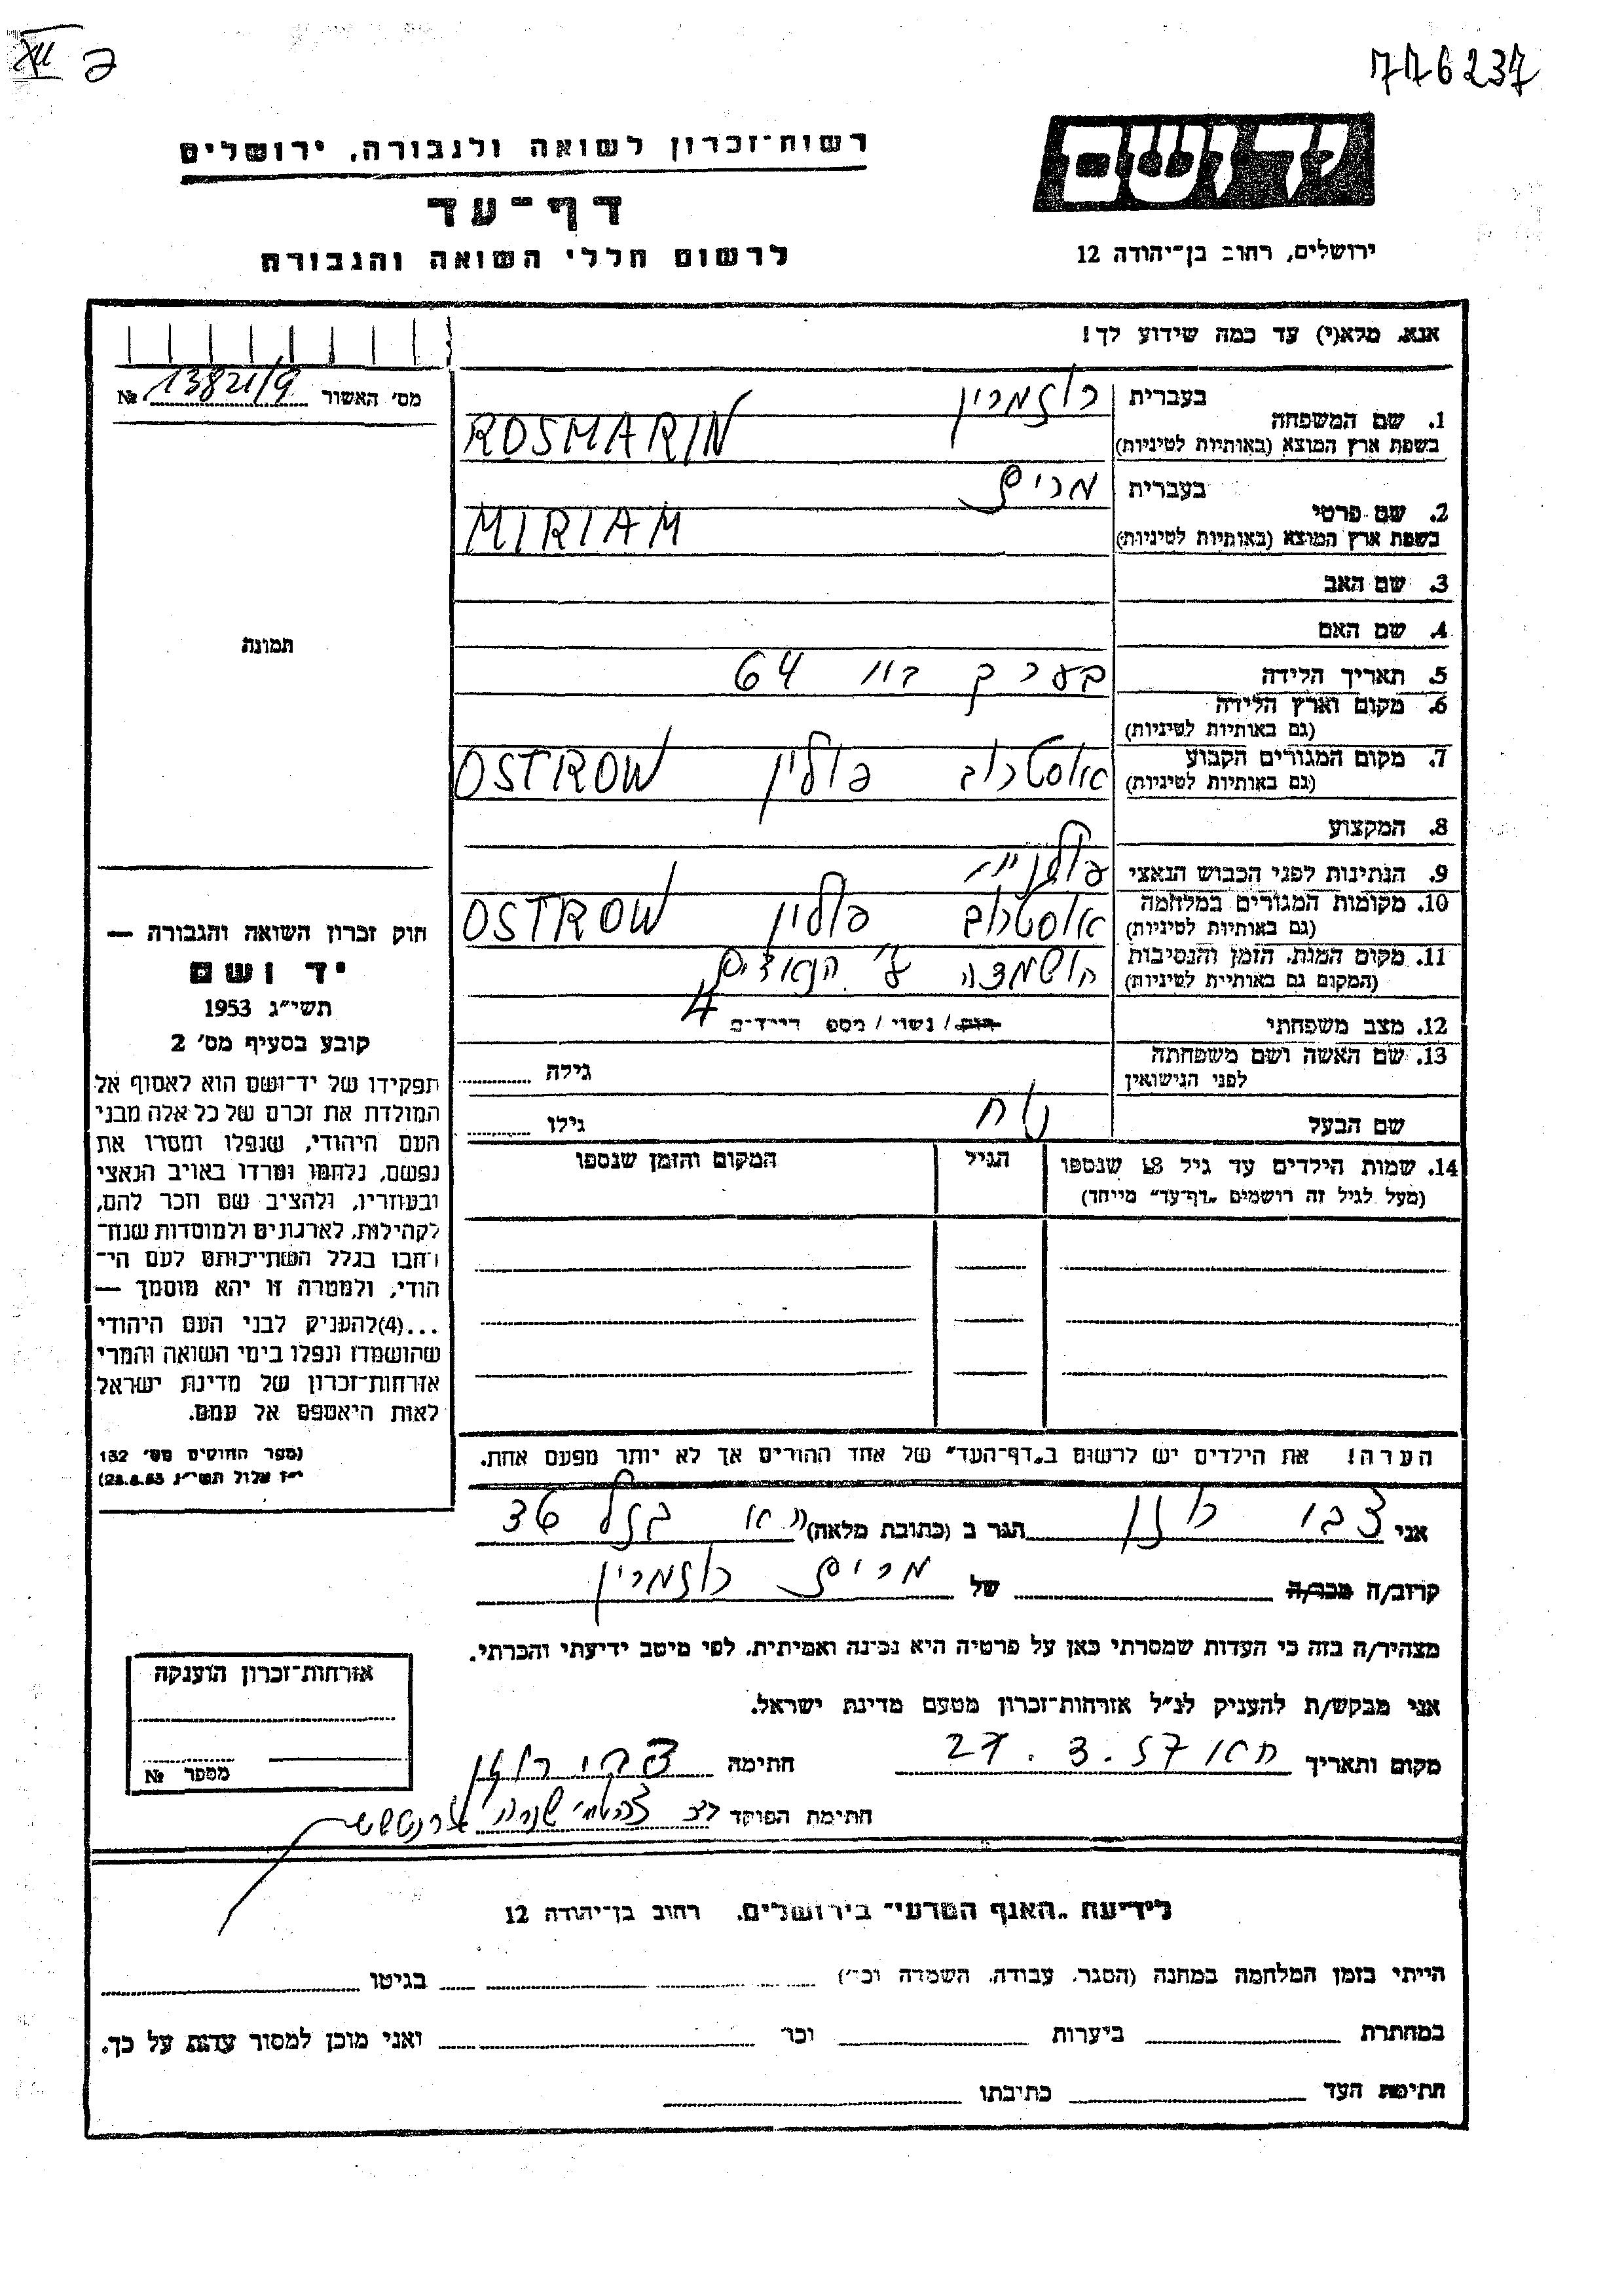 776237
XII
רשות־זכרון לשואה ולגבורה, ירושלים
דף־עד
לרשום חללי השואה והגבורה
יד ושם
ירושלים, רחוב בן־יהודה 12
אנא, מלא(י) עד כמה שידוע לך!
מס׳ האשור 13821/9 №
1. שם המשפחה
בעברית רוזמרין
בשפת ארץ המוצא (באותיות לטיניות) ROSMARIN
2. שם פרטי
בעברית מרים
בשפת ארץ המוצא (באותיות לטיניות) MIRIAM
3. שם האב
4. שם האם
5. תאריך הלידה בערך 64
6. מקום וארץ הלידה
(גם באותיות לטיניות)
7. מקום המגורים הקבוע
(גם באותיות לטיניות) אוסטרוב פולין OSTROW
8. המקצוע
9. הנתינות לפני הכבוש הנאצי פולנית
10. מקומות המגורים במלחמה
(גם באותיות לטיניות) אוסטרוב פולין OSTROW
11. מקום המות, הזמן והנסיבות
(המקום גם באותיות לטיניות) הושמדה ע״י הנאצים
12. מצב משפחתי רווק / נשוי / מספר הילדים 4
13. שם האשה ושם משפחתה
לפני הנישואין
גילה
שם הבעל נח גילו
14. שמות הילדים עד גיל 18 שנספו
(מעל לגיל זה רושמים „דף־עד״ מיוחד)
הגיל
המקום והזמן שנספו
הערה! את הילדים יש לרשום ב„דף־העד״ של אחד ההורים אך לא יותר מפעם אחת.
תמונה
חוק זכרון השואה והגבורה —
יד ושם
תשי״ג 1953
קובע בסעיף מס׳ 2
תפקידו של יד־ושם הוא לאסוף אל
המולדת את זכרם של כל אלה מבני
העם היהודי, שנפלו ומסרו את
נפשם, נלחמו ומרדו באויב הנאצי
ובעוזריו, ולהציב שם וזכר להם,
לקהילות, לארגונים ולמוסדות שנח־
רבו בגלל השתייכותם לעם הי־
הודי, ולמטרה זו יהא מוסמך —
...(4)להעניק לבני העם היהודי
שהושמדו ונפלו בימי השואה והמרי
אזרחות־זכרון של מדינת ישראל
לאות היאספם אל עמם.
(ספר החוקים מס׳ 132
י״ז אלול תשי״ג 28.8.53)
אני צבי רוזן הגר ב (כתובת מלאה) 36
קרוב/ה מכר/ה של מרים רוזמרין
מצהיר/ה בזה כי העדות שמסרתי כאן על פרטיה היא נכונה ואמיתית, לפי מיטב ידיעתי והכרתי.
אני מבקש/ת להעניק לנ״ל אזרחות־זכרון מטעם מדינת ישראל.
מקום ותאריך 27.3.57 חתימה צבי רוזן
חתימת הפוקד
אזרחות־זכרון הוענקה
מספר №
לידיעת „האגף המדעי״ בירושלים, רחוב בן־יהודה 12
הייתי בזמן המלחמה במחנה (הסגר, עבודה, השמדה וכו׳) בגיטו
במחתרת ביערות וכו׳ ואני מוכן למסור עדות על כך.
חתימת העד כתיבתו